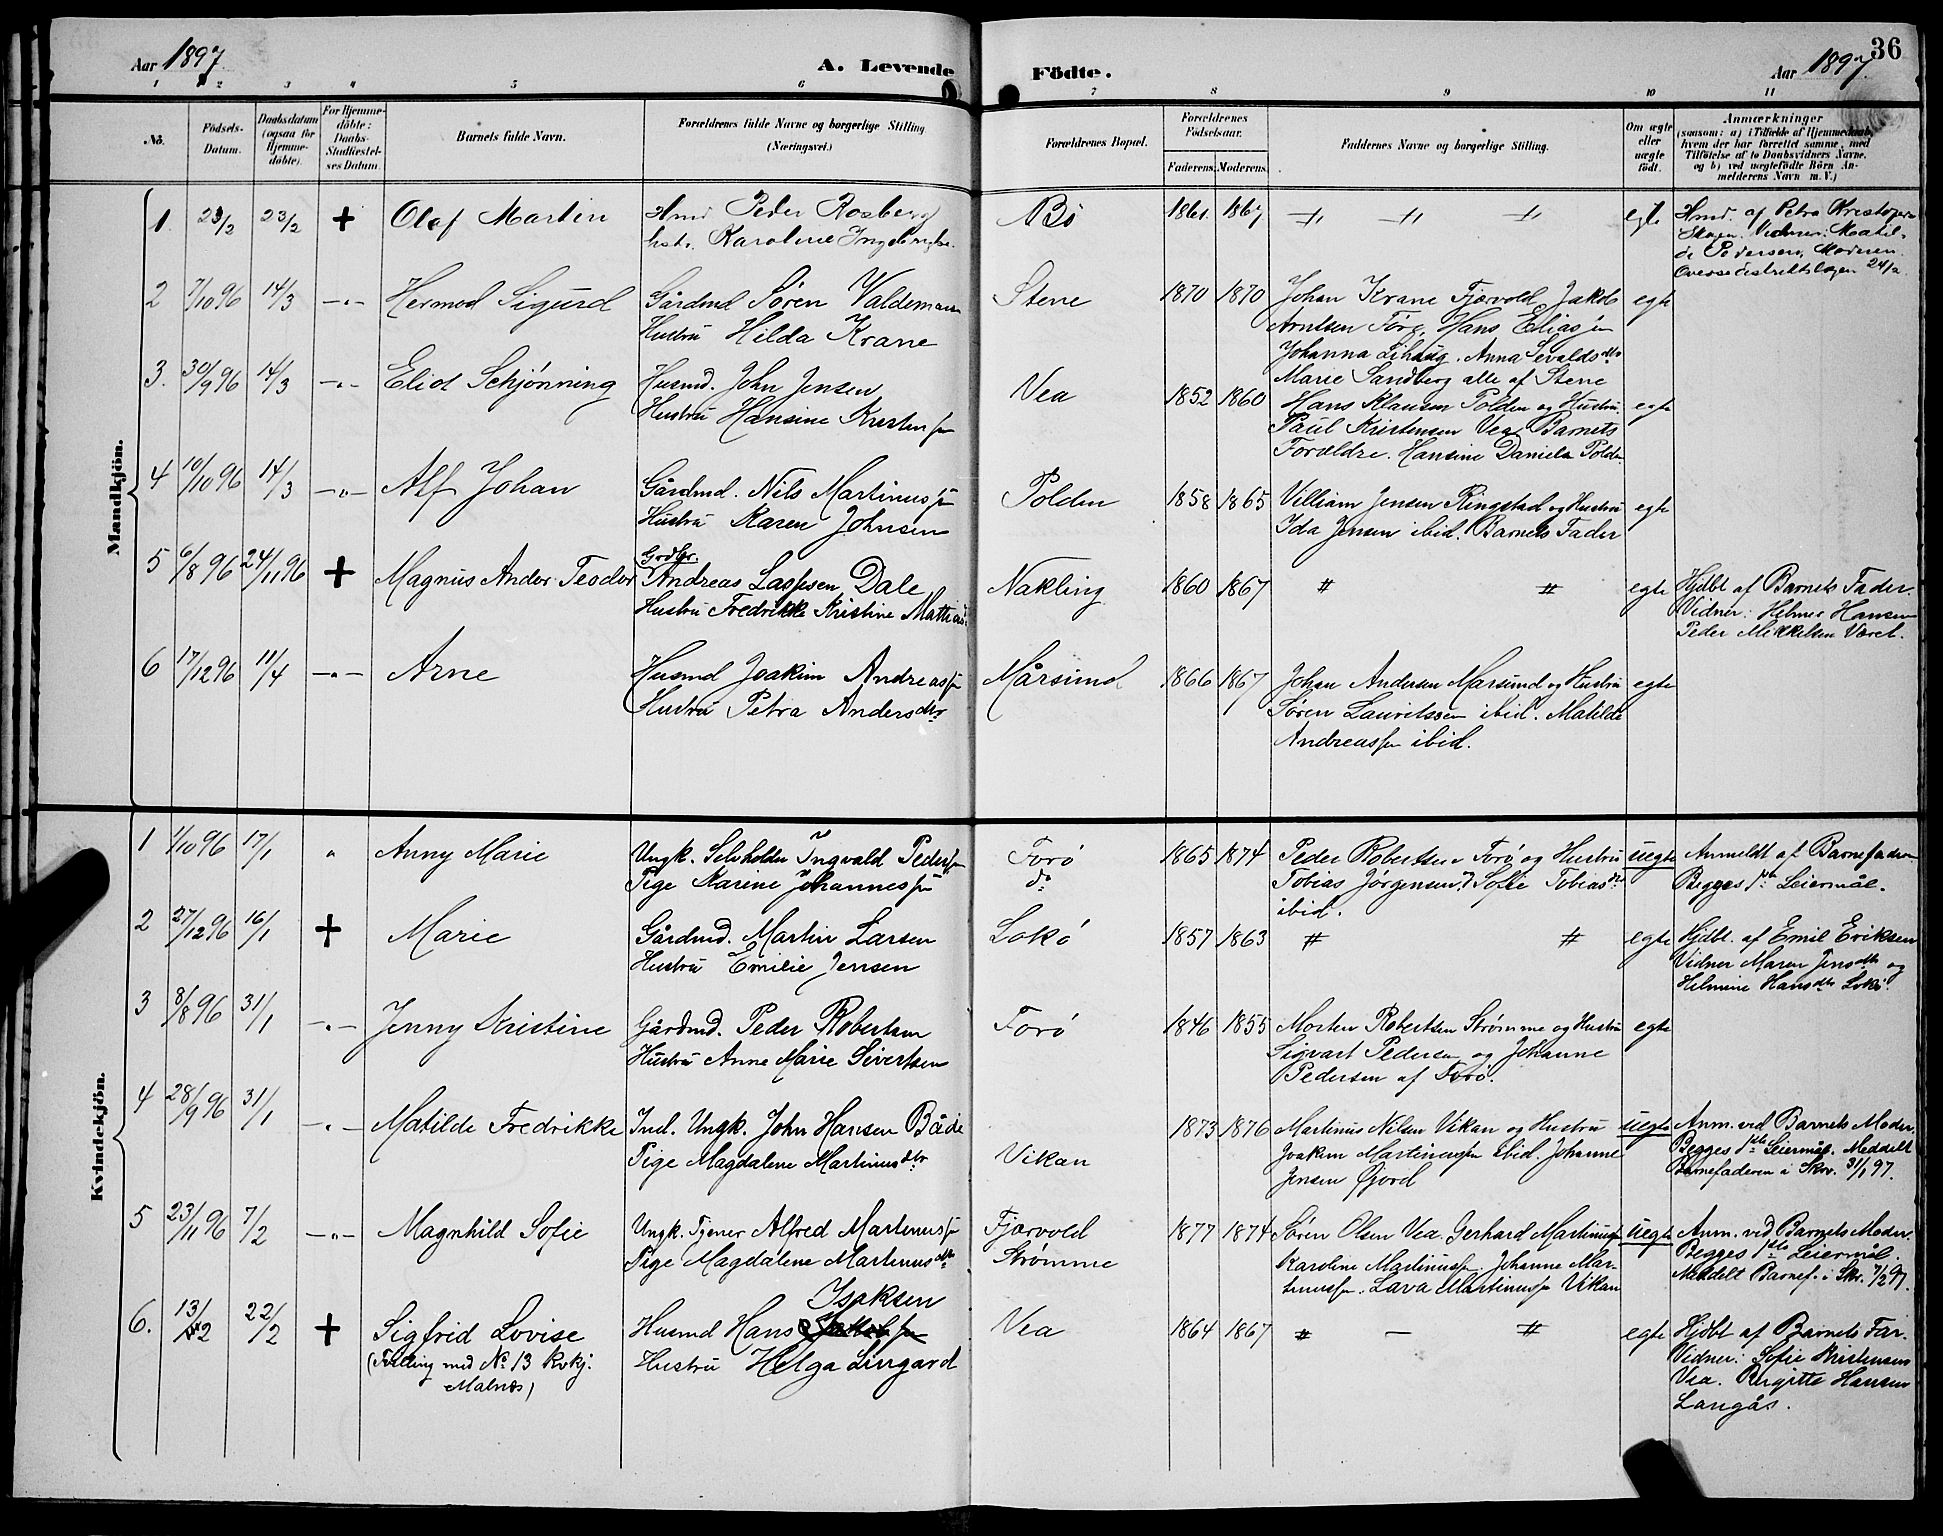 Aar 1897
A. Levende Födte.
Aar 1897
36
1 2 3 4 5 6 7 8 9 10 11
No.
Födsels-Datum.
Daabsdatum (ogsaa for Hjemmedöbte).
For Hjemmedöbte: Daabs Stadfæstelses Datum.
Barnets fulde Navn.
Forældrenes fulde Navne og borgerlige Stilling (Næringsvei.)
Forældrenes Bopæl.
Forældrenes Födselsaar.
Faderens. Moderens.
Faddernes Navne og borgerlige Stilling.
Om ægte eller uægte födt.
Anmærkninger (saasom: a) i Tilfælde af Hjemmedaab, hvem der har forrettet samme, med Tilföielse af to Daabsvidners Navne, og b) ved uægtefödte Börn Anmelderens Navn m. V.)
Mandkjön.
1. 23/2 + Olaf Martin
Peder Rosberg
Karoline
Bö 1861. 1867 egte
Hmd. af Petra
Skagen. Vidner: Matil-
de Pedersen, Moderen.
24/2
2 7/10 96 14/3 -"- Hermod Sigurd
Gårdmd Søren Valdemarsen
Hustru Hilda Krane
Stene 1870 1870
Johan Krane Fjærvold Jakob
Arntsen Forø, Hans Eliassen
Johanna Lihaug. Anna Sevaldsdtr
Marie Sandberg alle af Stene
egte
3. 30/9 96 14/3 -"- Eliot Schjønning
Husmd. John Jensen
Hustru Hansine Kristensen
Vea 1852 1860
Hans Klausen Polden og Hustru.
Paul Kristensen Vea. Barnets
Forældre. Hansine Daniels Polden
egte
4 10/10 96 14/3 -"- Alf Johan
Gårdmd. Nils Martinussen
Hustru Karen Johnsen
Polden 1858 1865
Villiam Jensen Ringstad og Hustru
Ida Jensen ibid. Barnets Fader
egte
5 6/8 96 24/11 96 + Magnus Andor Teodor
Grdbr.
Andreas Lassesen Dale
Hustru Fredrikke Kristine
Nakling 1860 1867 " " egte
Hjdbt af Barnets Fader.
Vidner: Helmer Hansen
Peder Mikkelsen Været.
6 17/12 96 11/4 -"- Arne
Husmd Joakim Andreassen
Hustru Petra Andersdtr
Mårsund 1866 1867
Johan Andersen Marsund og Hustru
Søren Lauritssen ibid. Matilde
Andreassen ibid.
egte
Kvindekjön.
1 1/10 96 17/1 " Anny Marie
Ungk. Selvholder Ingvald Pedersen
Pige Karine Johannessen
Forø
do
1865 1874
Peder Robertsen Forø og Hustru
Tobias Jørgensen, Sofie Tobiasdtr
ibid.
Uegte
Anmeldt af Barnefaderen
Begges 1ste Leiermål.
2 27/12 96 16/1 + Marie
Gårdmd. Martin Larsen
Hustru Emilie Jensen
Lokø 1857 1863 " " egte
Hjdbt. af Emil Eriksen
Vidner Maren Jensdtr og
Helmine Hansdtr Lokø.
3 8/8 96 31/1 -"- Jenny Kristine
Gårdmd. Peder Robertsen
Hustru Anne Marie Sivertsen
Forø 1846 1855
Morten Robertsen Strømme og Hustru
Sigvart Pedersen og Johanne
Pedersen af Forø.
egte
4 28/9 96 31/1 -"- Matilde Fredrikke
Ind. Ungk. John Hansen Både
Pige Magdalene Martinusdtr
Vikan 1873 1876
Martinus Nilsen Vikan og Hustru
Joakim Martinussen ibid. Johanne
Jensen Gjord
Uegte
Anm. ved Barnets Moder.
Begges 1ste Leiermål. Meddelt
Barnefaderen i Skr. 31/1 97.
5 23/11 96 7/2 -"- Magnhild Sofie
Ungk. Tjener Alfred Martinussen
Pige Magdalene Martinusdtr
Fjærvold
Strømme
1877 1874
Søren Olsen Vea Gerhard Martinussen
Karoline Martinussen. Johanne Mar-
tinussen. Lava Martinussen Vikan
Uegte
Anm. ved Barnets Moder.
Begges 1ste Leiermål.
Meddelt Barnef. i Skr. 7/2 97.
6. 13/2 22/2 + Sigfrid Lovise
(Tvilling med No 13 Kvkj.
Malnes)
Isaksen
Husmd Hans
Hustru Helga Lingard
Vea 1864 1867 " — " egte
Hjdbt af Barnets Far.
Vidner: Sofie Kristensen
Vea. Birgitte Hansen
Langås.